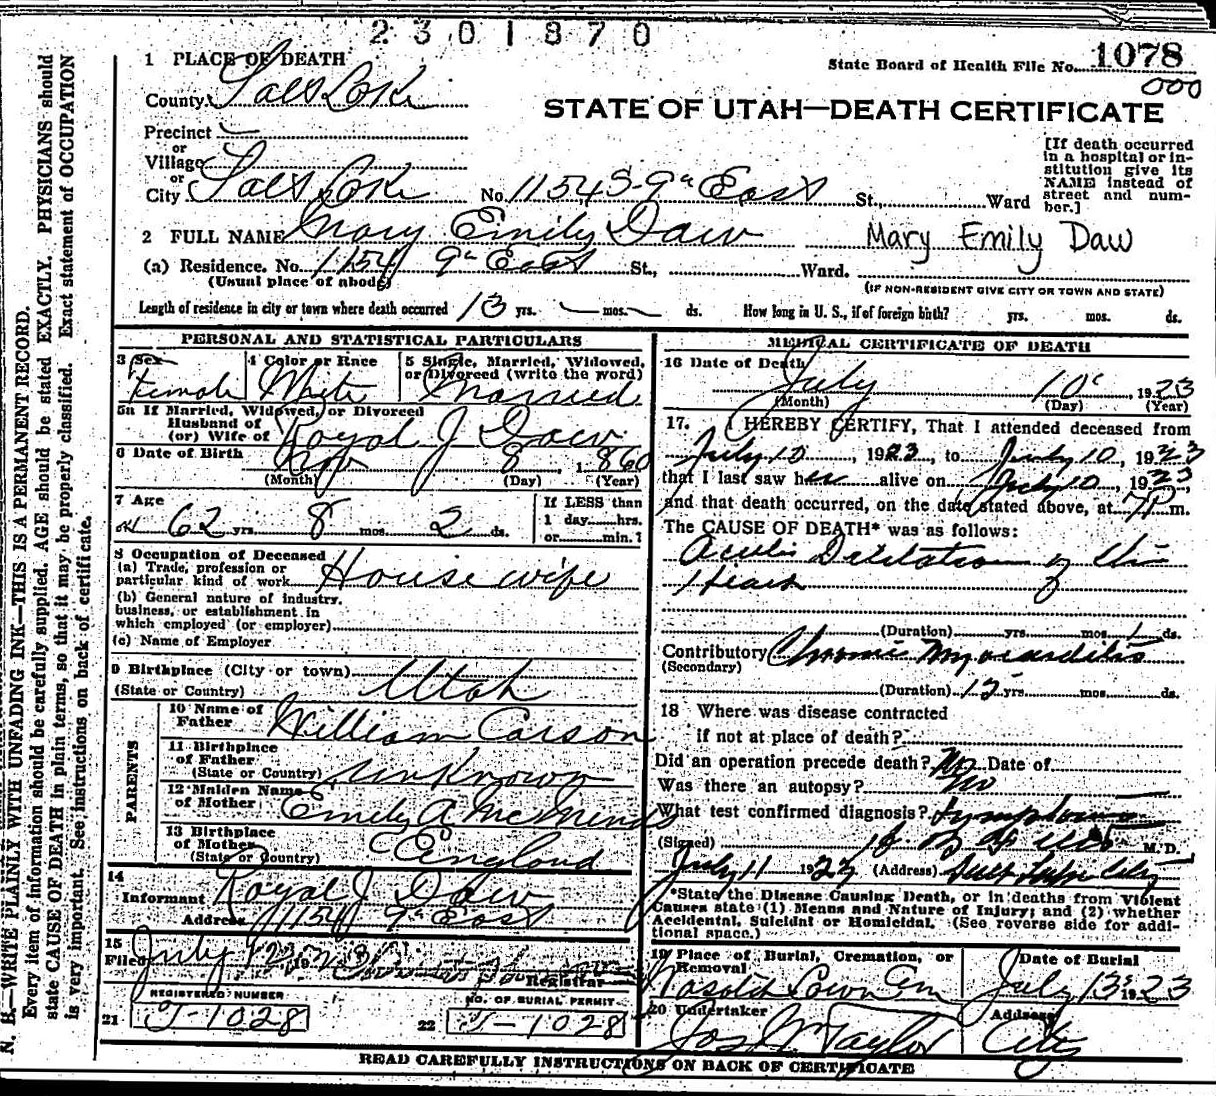 2301870
1 PLACE OF DEATH
State Board of Health File No. 1078
000
County Salt Lake
STATE OF UTAH—DEATH CERTIFICATE
Precinct
or
Village
or
City Salt Lake No. 1154 S-9th East St., Ward
[If death occurred
in a hospital or in-
stitution give its
NAME instead of
street and num-
ber.]
2 FULL NAME Mary Emily Daw Mary Emily Daw
(a) Residence. No. 1154 9th East St., Ward.
(Usual place of abode)
(IF NON-RESIDENT GIVE CITY OR TOWN AND STATE)
Length of residence in city or town where death occurred 13 yrs. — mos. — ds. How long in U. S., if of foreign birth? yrs. mos. ds.
PERSONAL AND STATISTICAL PARTICULARS
3 Sex Female
4 Color or Race White
5 Single, Married, Widowed,
or Divorced (write the word)
Married
5a If Married, Widowed, or Divorced
Husband of
(or) Wife of Royal J Daw
6 Date of Birth Nov 8, 1860
(Month) (Day) (Year)
7 Age
62 yrs 8 mos. 2 ds.
If LESS than
1 day......hrs.
or......min.?
8 Occupation of Deceased
(a) Trade, profession or
particular kind of work Housewife
(b) General nature of industry,
business, or establishment in
which employed (or employer)
(c) Name of Employer
9 Birthplace (City or town)
(State or Country) Utah
PARENTS
10 Name of
Father William Carson
11 Birthplace
of Father
(State or Country) Unknown
12 Maiden Name
of Mother Emily A
13 Birthplace
of Mother
(State or Country) England
14
Informant Royal J. Daw
Address 1154 9th East
15
Filed July 12 1923
Registrar
REGISTERED NUMBER
21 J-1028
NO. OF BURIAL PERMIT
22 J-1028
MEDICAL CERTIFICATE OF DEATH
16 Date of Death
July 10, 1923
(Month) (Day) (Year)
17. I HEREBY CERTIFY, That I attended deceased from
July 10, 1923, to July 10, 1923
that I last saw her alive on July 10, 1923,
and that death occurred, on the date stated above, at 7 P m.
The CAUSE OF DEATH* was as follows:
Acute Dilitation of the
Heart
(Duration) yrs. mos. 1 ds.
Contributory Chronic Myocarditis
(Secondary)
(Duration) 12 yrs. mos. ds.
18 Where was disease contracted
if not at place of death?
Did an operation precede death? No Date of
Was there an autopsy? No
What test confirmed diagnosis? Symptoms
(Signed) M. D.
July 11 1923 (Address)
*State the Disease Causing Death, or in deaths from Violent
Causes state (1) Means and Nature of Injury; and (2) whether
Accidental, Suicidal or Homicidal. (See reverse side for addi-
tional space.)
19 Place of Burial, Cremation, or
Removal
Wasatch Lawn Cem
Date of Burial
July 13 1923
20 Undertaker
Jos Wm Taylor
Address
City
READ CAREFULLY INSTRUCTIONS ON BACK OF CERTIFICATE
N. B.—WRITE PLAINLY WITH UNFADING INK—THIS IS A PERMANENT RECORD.
Every item of information should be carefully supplied. AGE should be stated EXACTLY. PHYSICIANS should
state CAUSE OF DEATH in plain terms, so that it may be properly classified. Exact statement of OCCUPATION
is very important. See instructions on back of certificate.